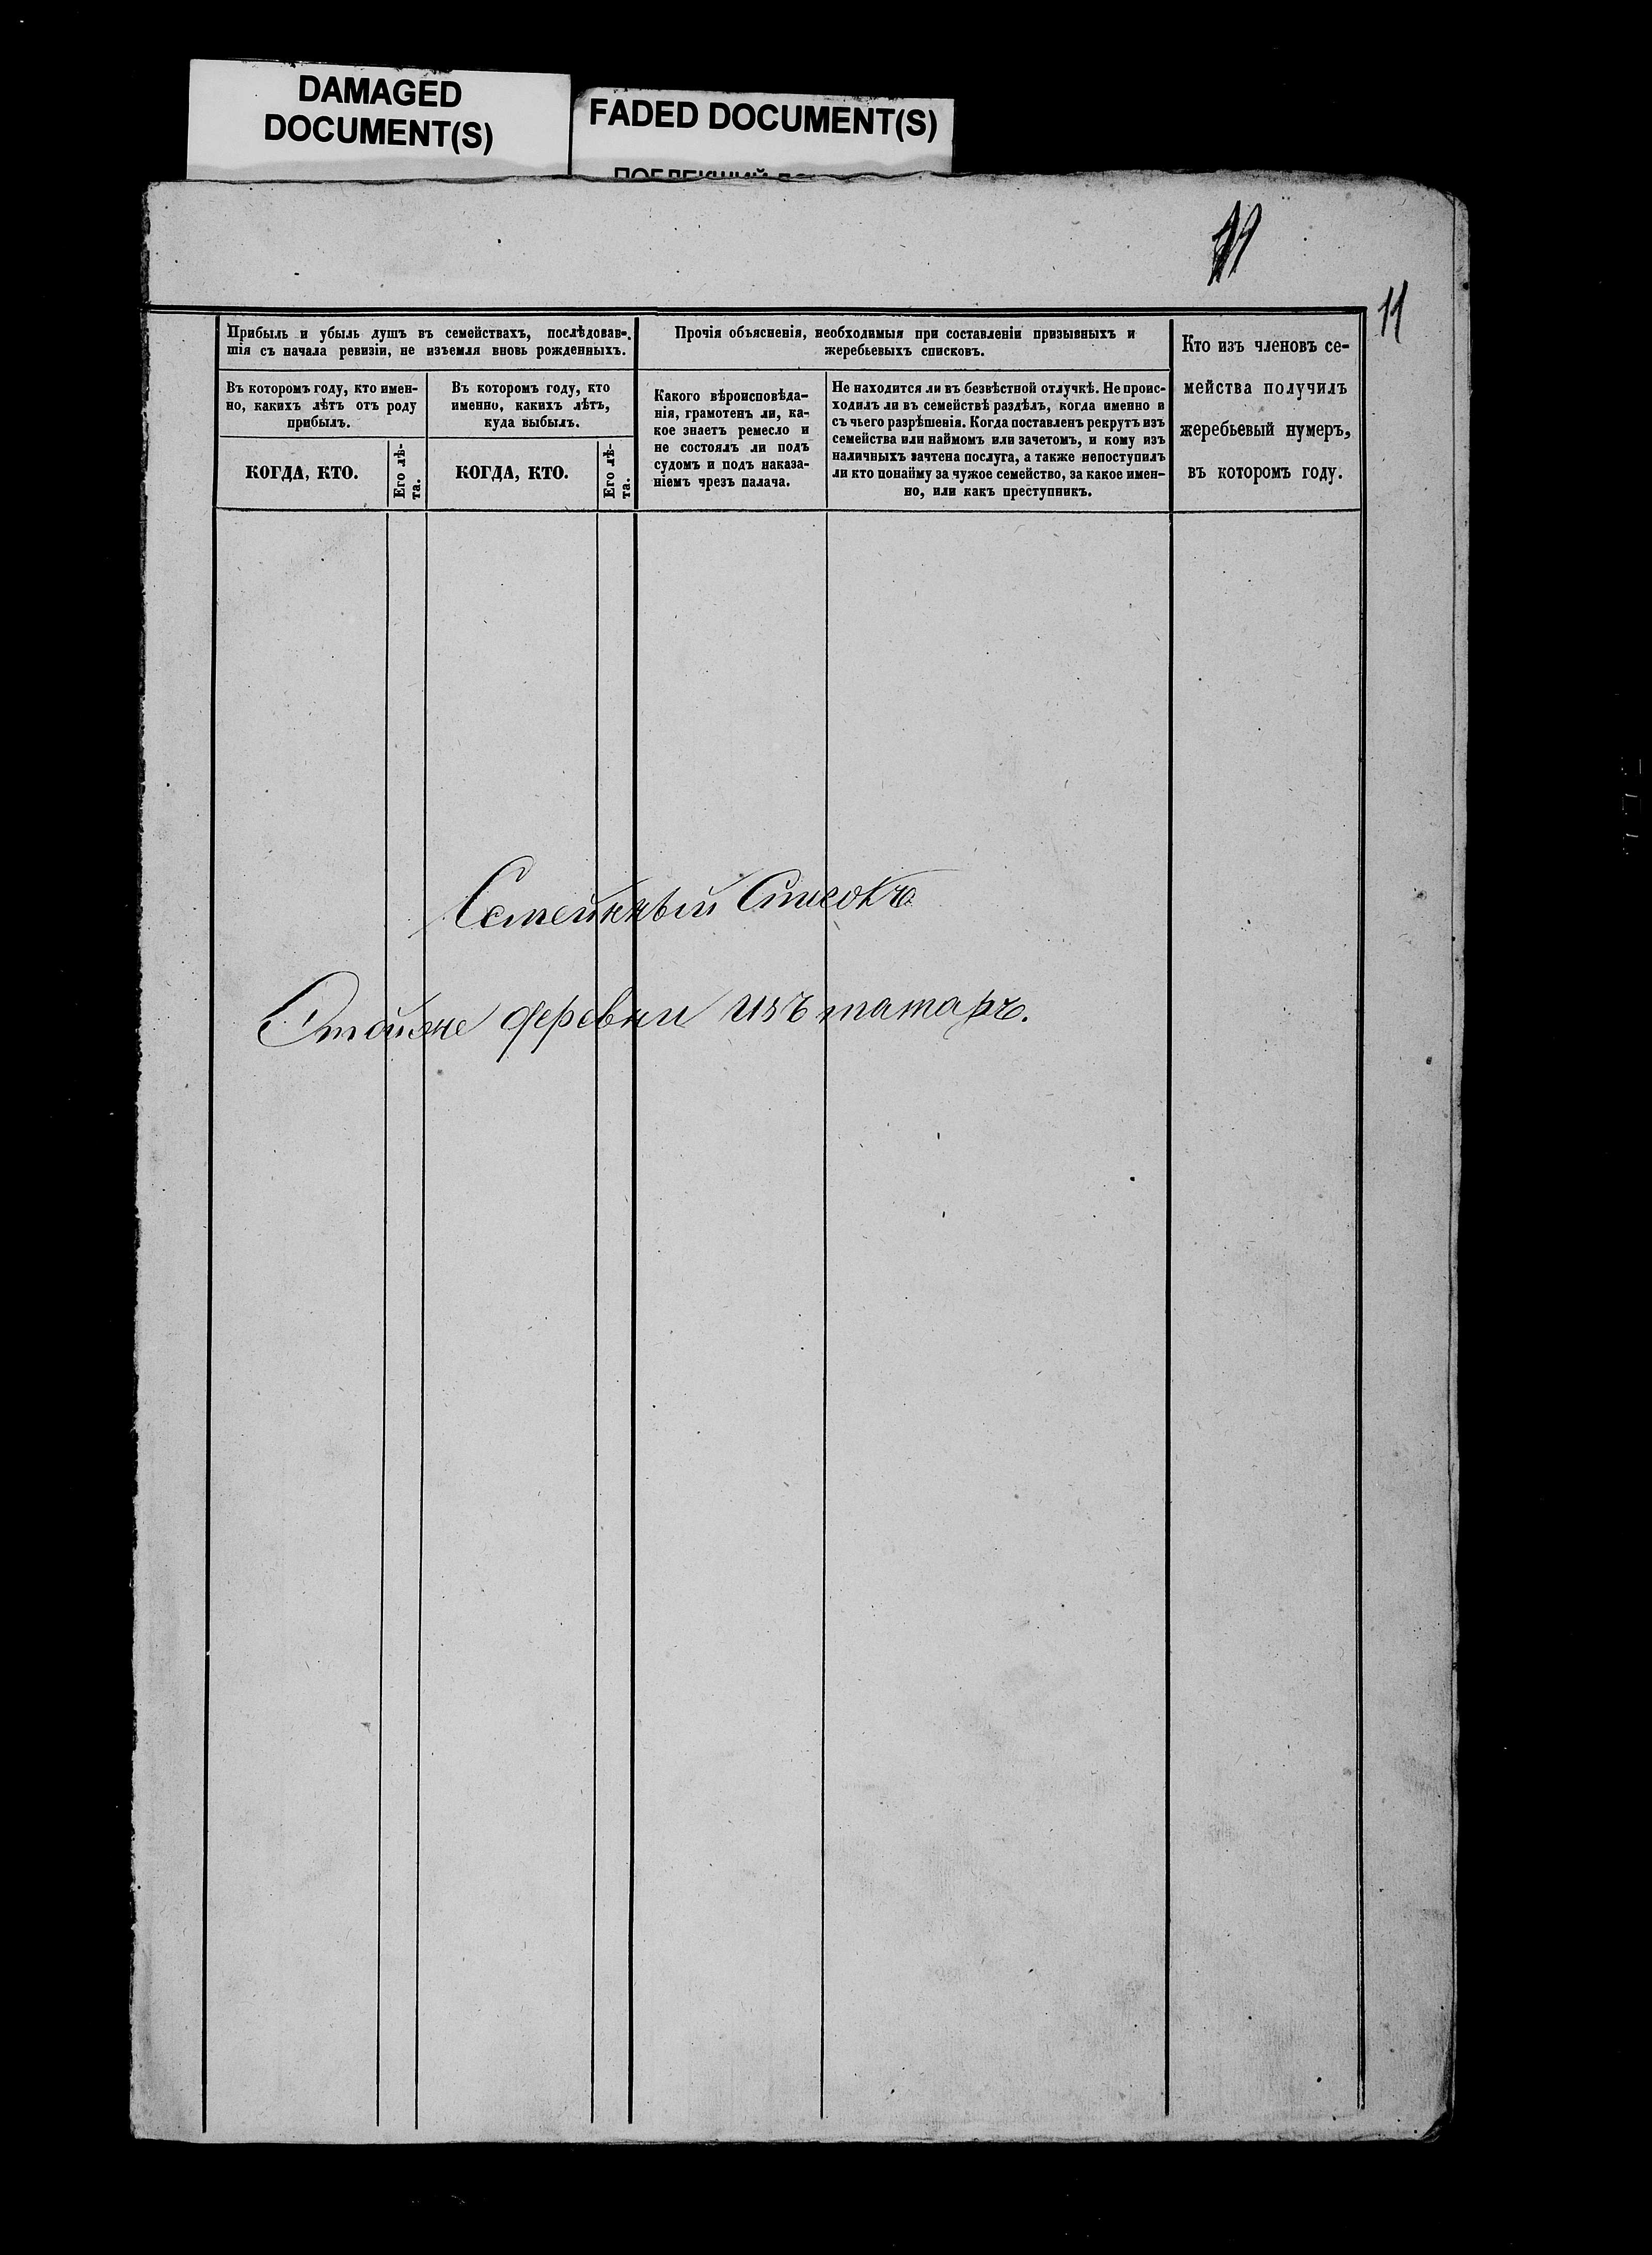 DAMAGED
DOCUMENT(S)
FADED DOCUMENT(S)
11
11
Прибыль и убыль душъ въ семействахъ, послѣдовав-
шія съ начала ревизіи, не изъемля вновь рожденныхъ.
Въ которомъ году, кто имен-
но, какихъ лѣтъ отъ роду
прибылъ.
КОГДА, КТО.
Его лѣ-
та.
Въ которомъ году, кто
именно, какихъ лѣтъ,
куда выбылъ.
КОГДА, КТО.
Его лѣ-
та.
Прочія объясненія, необходимыя при составленіи призывныхъ и
жеребьевыхъ списковъ.
Какого вѣроисповѣда-
нія, грамотенъ ли, ка-
кое знаетъ ремесло и
не состоялъ ли подъ
судомъ и подъ наказа-
ніемъ чрезъ палача.
Не находится ли въ безвѣстной отлучкѣ. Не проис-
ходилъ ли въ семействѣ раздѣлъ, когда именно и
съ чьего разрѣшенія. Когда поставленъ рекрутъ изъ
семейства или наймомъ или зачетомъ, и кому изъ
наличныхъ зачтена послуга, а также непоступилъ
ли кто понайму за чужое семейство, за какое имен-
но, или какъ преступникъ.
Кто изъ членовъ се-
мейства получилъ
жеребьевый нумеръ,
въ которомъ году.
Семейнный Списокъ
Тойже деревни изъ татаръ.